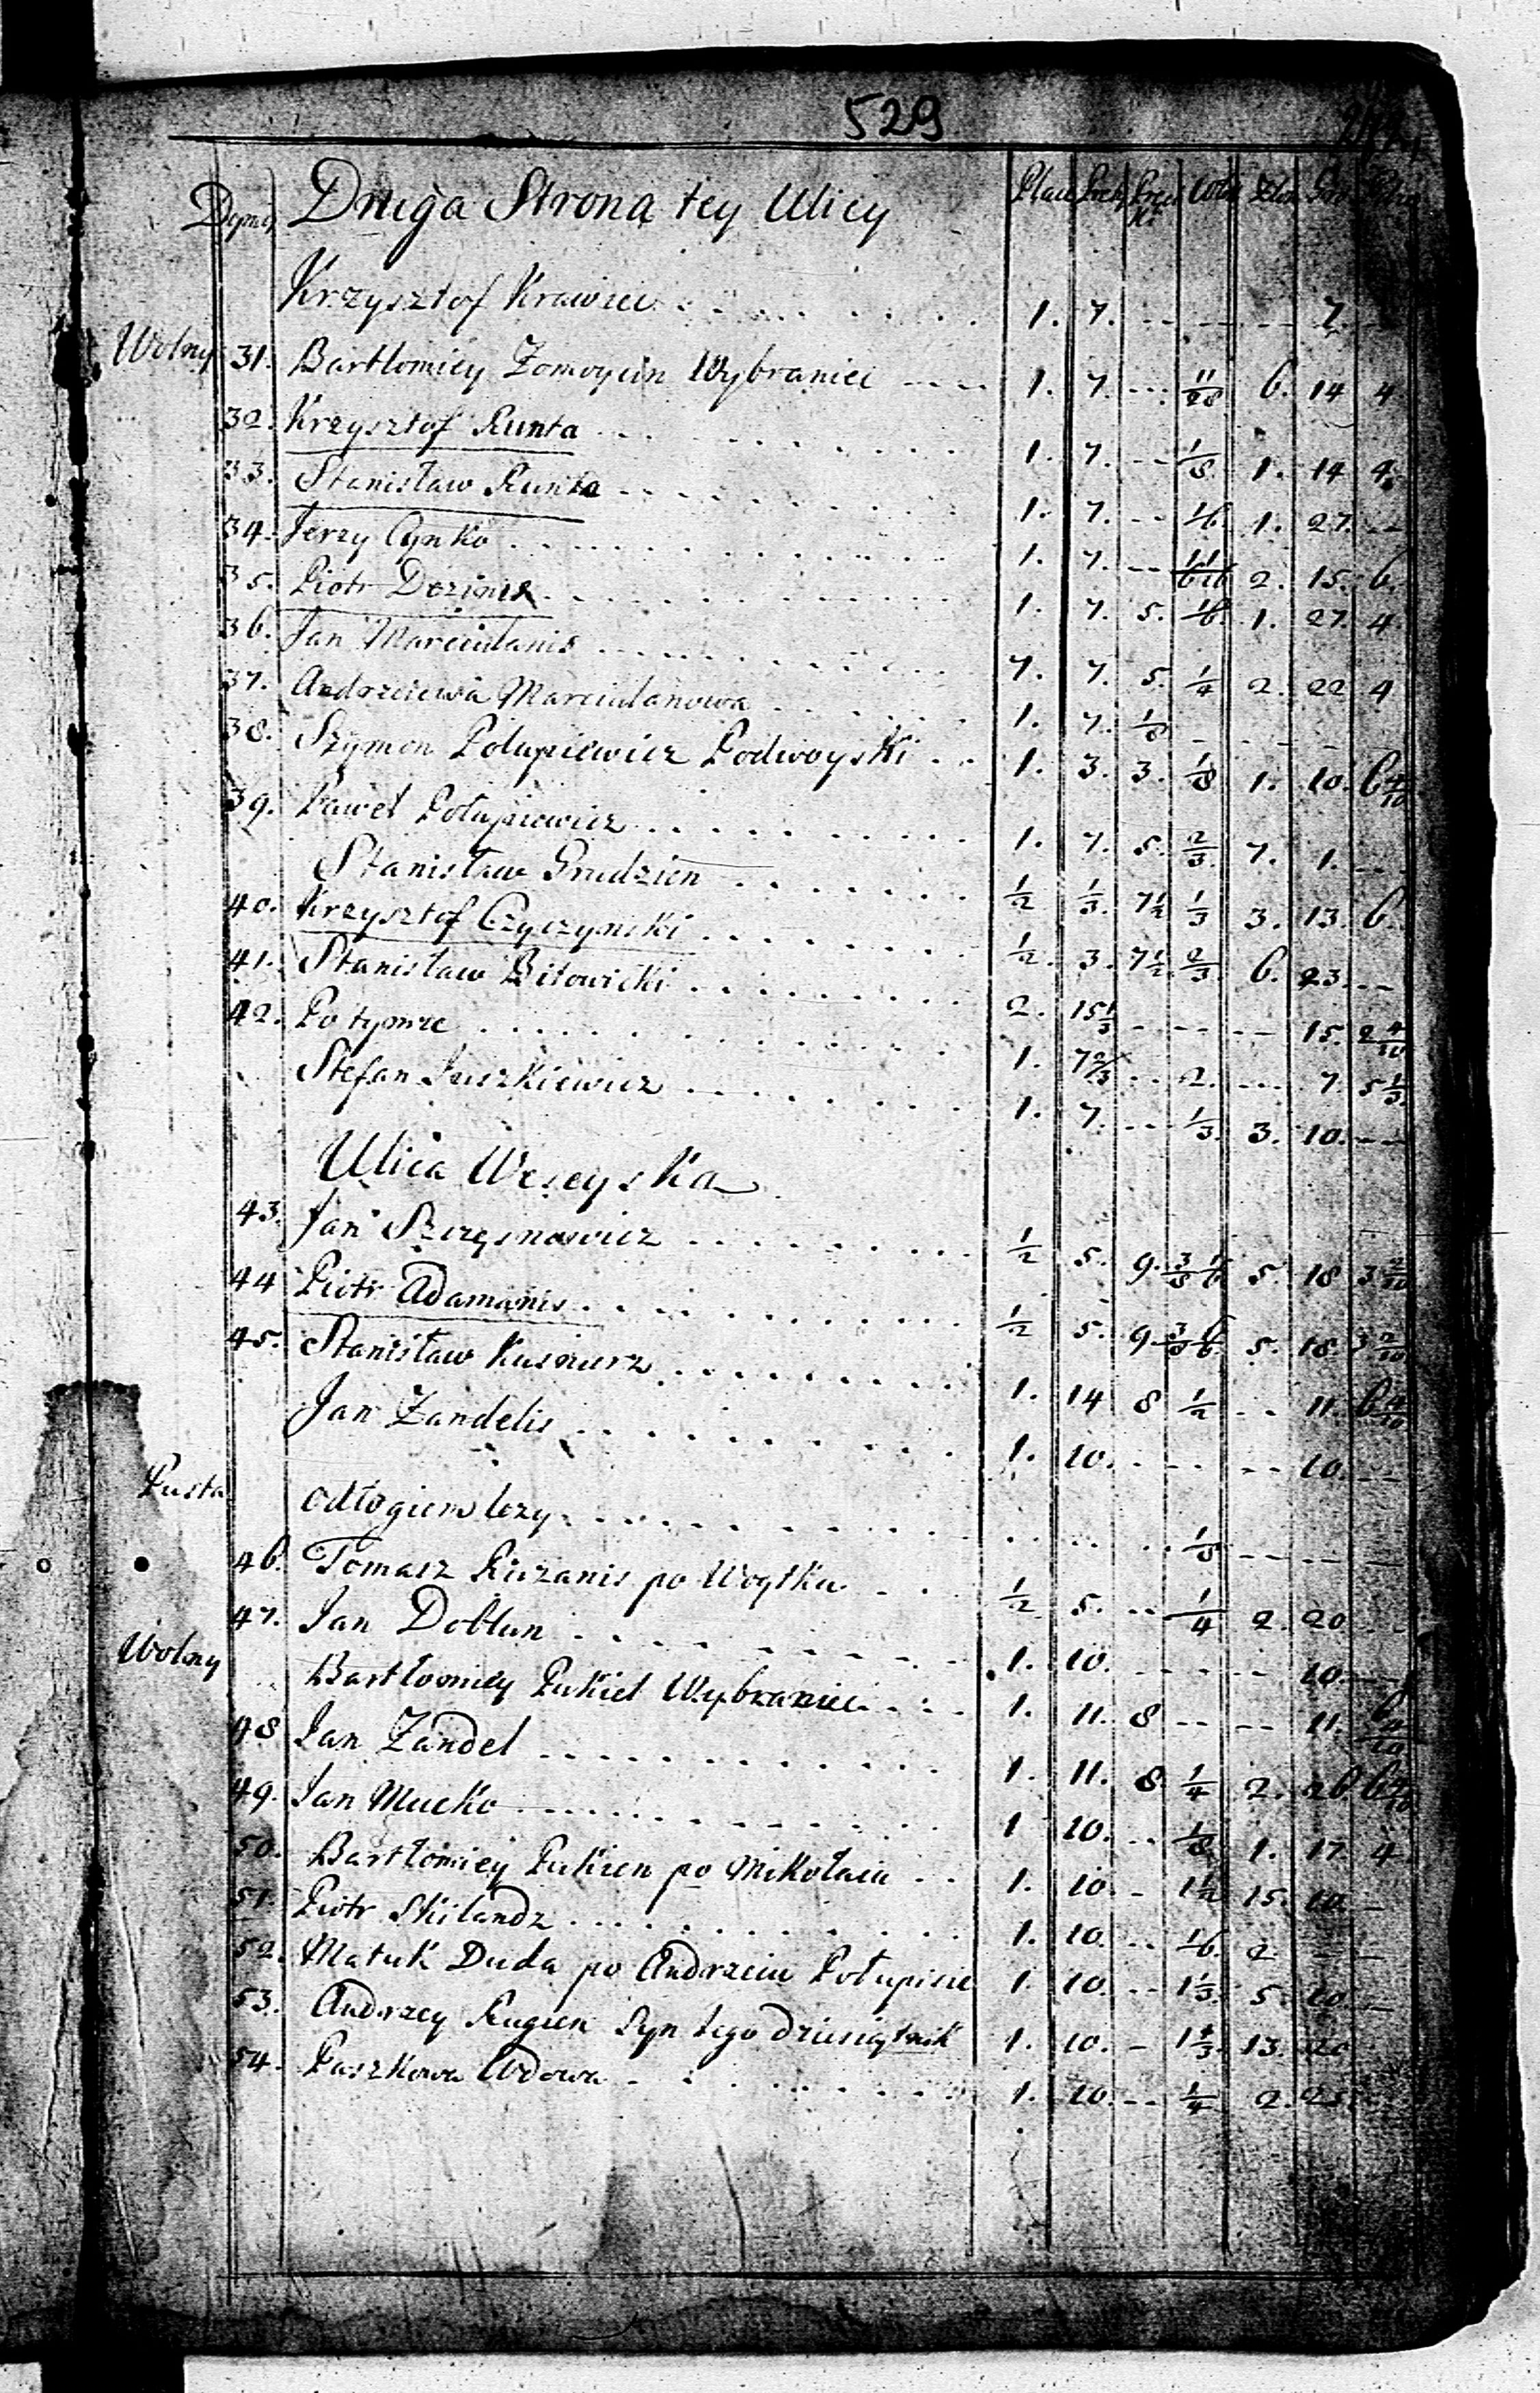 529
Dymy Druga Strona tey Ulicy Place Pręty Pręci ki Włók Złot Gro
Krzysztof Krawiec 1. 7. -- -- -- 7. --
Wolny 31. Bartłomiey Zomoycin Wybraniec 1. 7. -- 11/28 6. 14 4
32. Krzysztof Runta 1. 7. -- 1/8 1. 14 4.
33. Stanisław Runta 1. 7. -- 1/6 1. 27. --
34. Jerzy Cynko 1. 7. -- 2. 15. 6.
35. Piotr 1. 7. 5. 1/6 1. 27. 4
36. Jan Marciulanis 7. 7. 5. 1/4 2. 22 4
37. Andrzeiewa Marciulanowa 1. 7. 1/8 - - - -
38. Szymon Połupiewicz Podwoyski 1. 3. 3. 1/8 1. 10. 6 4/10
39. Paweł Połupiewicz 1. 7. 5. 2/3 7. 1. --
Stanisław Grudzien 1/2 1/3. 7 1/2 1/3 3. 13. 6.
40. Krzysztof Czyczynski 1/2. 3. 7 1/2 2/3 6. 23. --
41. Stanisław Bitowicki 2. 15 1/3 -- -- -- 15. 2 4/10
42. Po tymże 1. 7 2/3 -- 2. -- 7. 5 1/3
Stefan Juszkiewicz 1. 7. -- 1/3. 3. 10. --
Ulica Weseyska
43. Jan Szczęsnowicz 1/2 5. 9. 3/8 1/6 5. 18 3 2/10
44 Piotr Adamanis 1/2 5. 9 5. 18. 3 2/10
45. Stanisław Kusnierz 1. 14 8 1/2 -- 11. 6 4/10
Jan Zandelis 1. 10. -- -- -- 10. --
Pusta odłogiem leży 1/8 -- -- --
46. Tomasz Ruzanis po Woytku 1/2 5. -- 1/4 2. 20 --
47. Jan Doblun 1. 10. -- -- -- 10. --
Wolny Bartłomiey Pukiel Wybraniec 1. 11. 8 -- -- 11. 6 4/10
48 Jan Zandel 1. 11. 8. 1/4 2. 26. 6 4/10
49. Jan Mucko 1 10. -- 1/8. 1. 17. 4.
50. Bartłomiey Pukien po Mikołaiu 1. 10. - 1 1/2 15. 10. -
51. Piotr Skilandz 1. 10. -- 1/6. 2. -- --
52. Matuk Duda po Andrzeiu Połupisie 1. 10. -- 1 1/3. 5. 10. --
53. Andrzey Rugien Syn tego dziesiątnik 1. 10. - 1 1/3. 13. 20
54. Paszkowa Wdowa 1. 10. -- 1/4 2. 25.